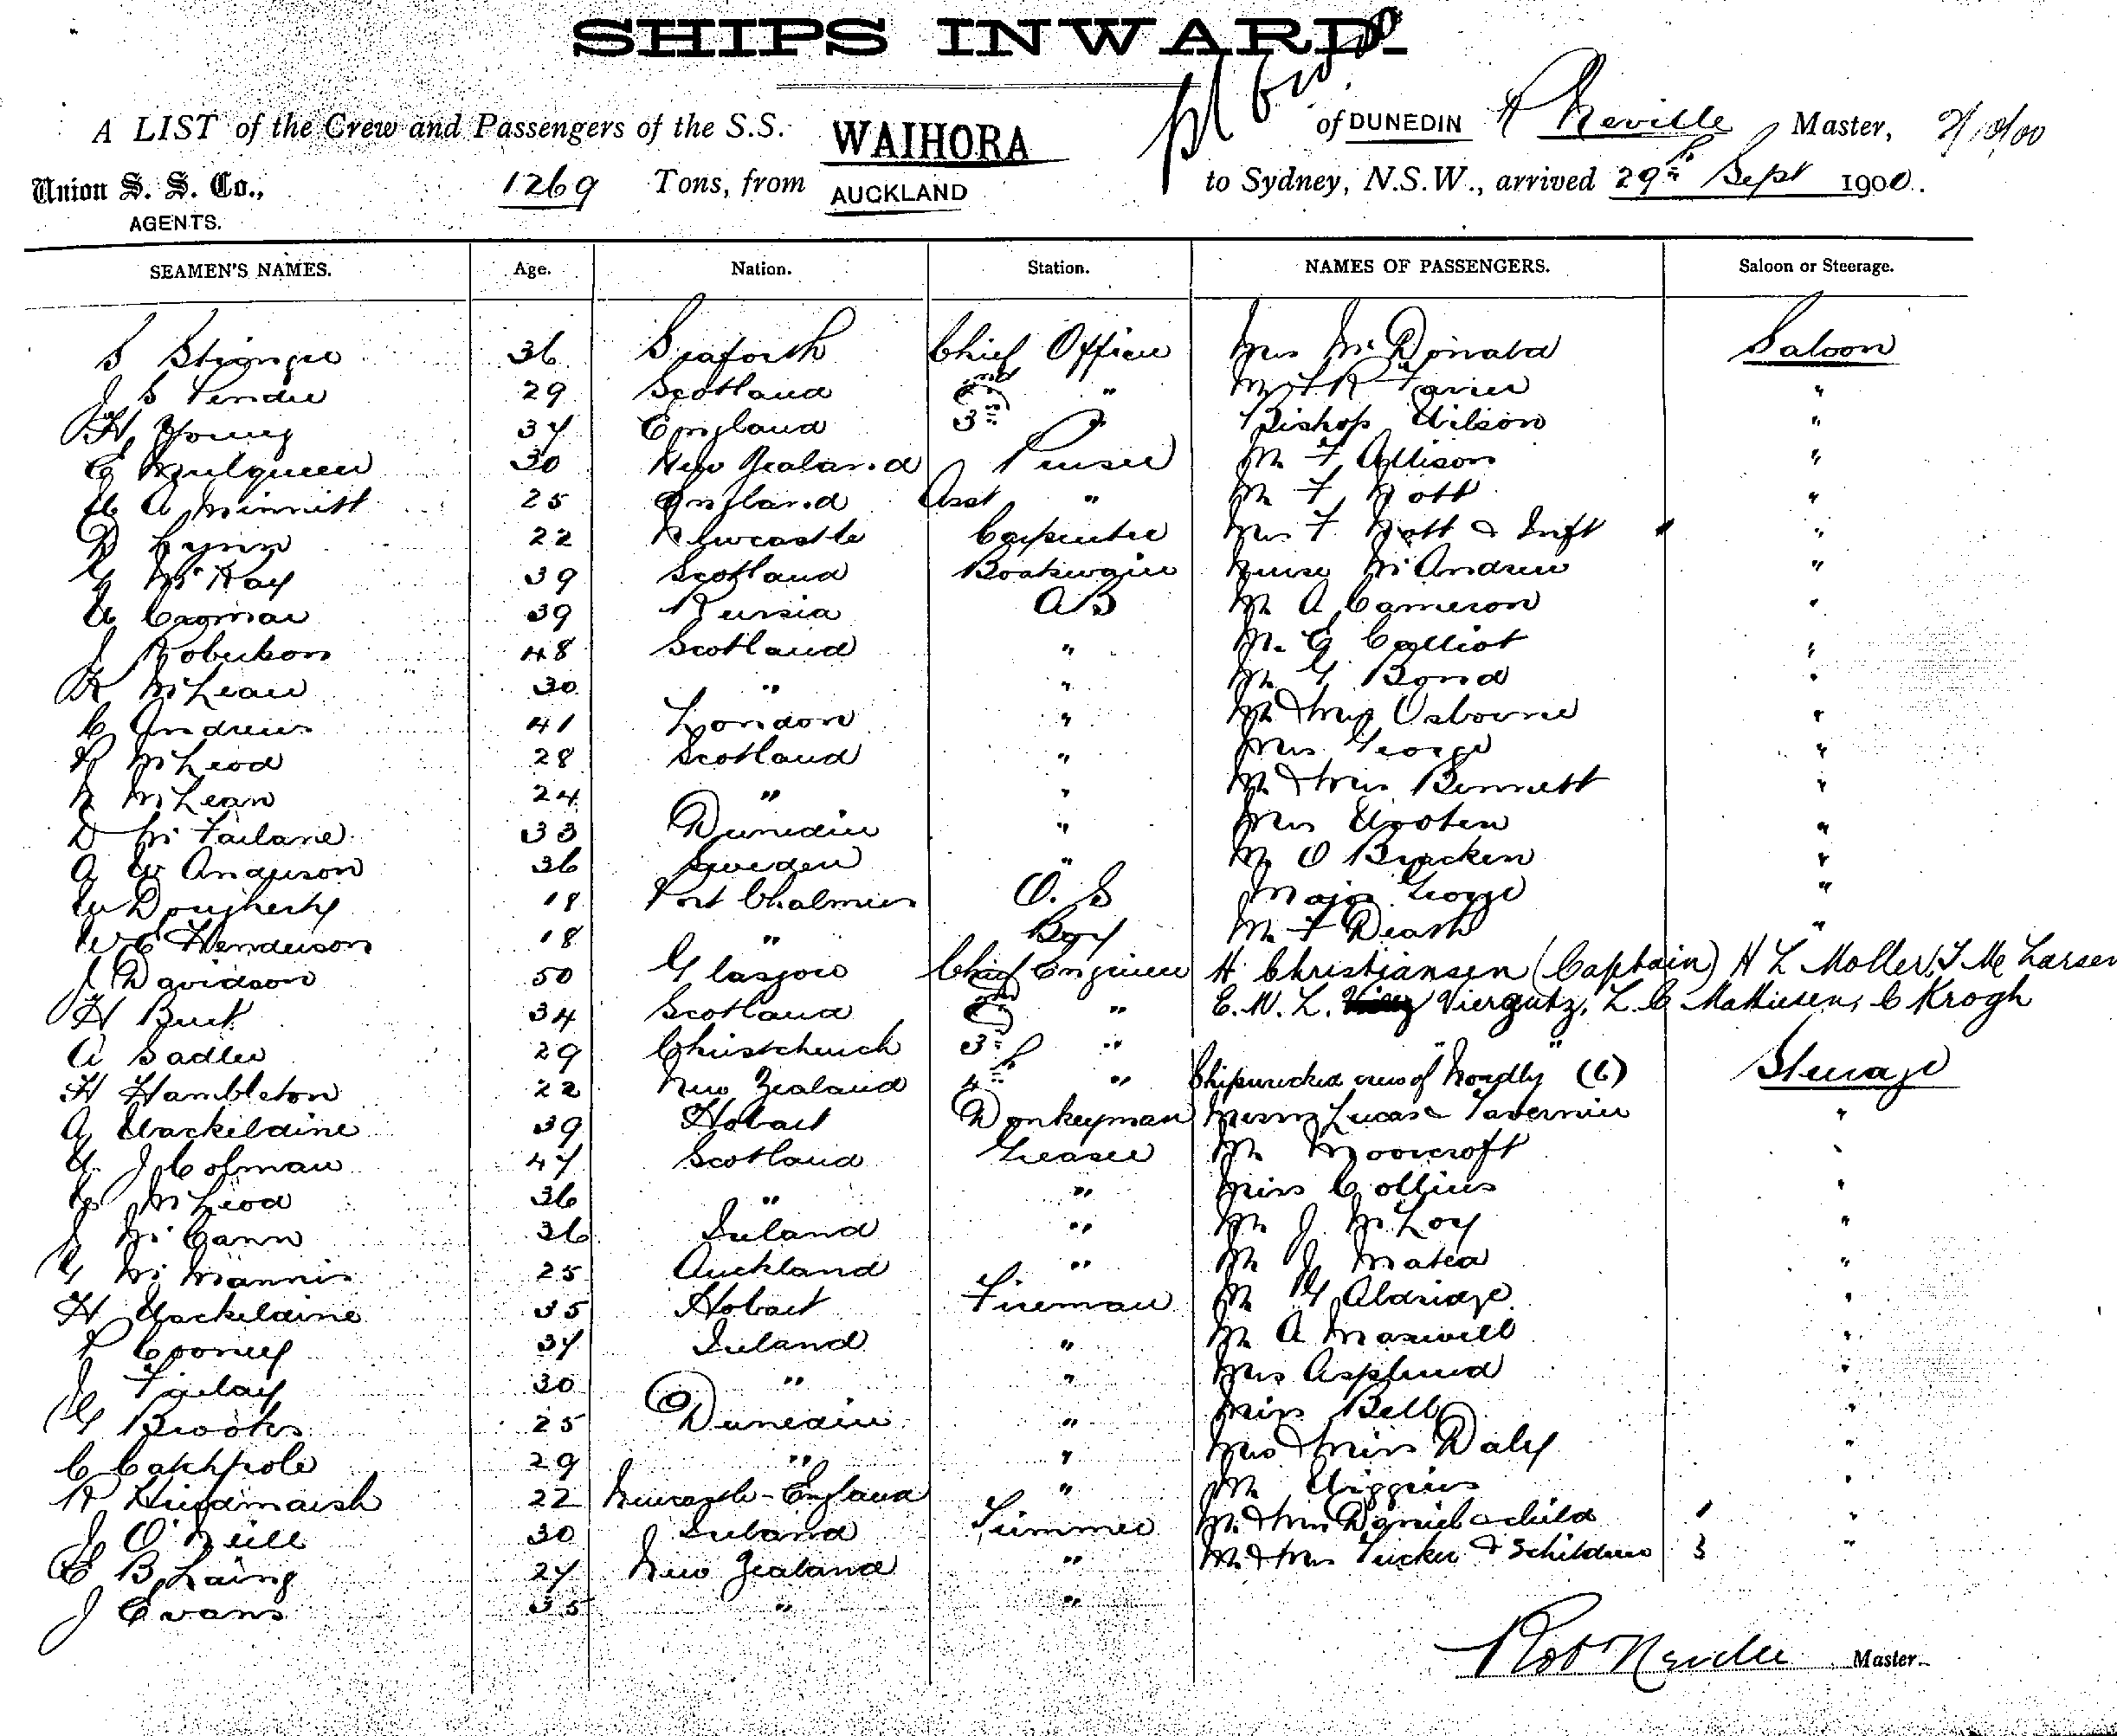 SHIPS INWARD.
A LIST of the Crew and Passengers of the S.S. WAIHORA of DUNEDIN R Neville Master, 2/10/00
Union S. S. Co., 1269 Tons, from AUCKLAND to Sydney, N.S.W., arrived 29th Sept 1900.
AGENTS.
SEAMEN'S NAMES. Age. Nation. Station. NAMES OF PASSENGERS. Saloon or Steerage.
S Stringer 36 Seaforth Chief Officer Mrs McDonald Saloon
J S 29 Scotland 2nd " Mr R "
H Young 37 England 3rd " Bishop Wilson "
E Mulqueen 30 New Zealand Purser Mr F Allison "
A Minnitt 25 England Asst " Mr F Nott "
D Lynn 22 Newcastle Carpenter Mrs F Nott & Inft 1 "
G McKay 39 Scotland Boatswain Nurse McAndrew "
39 Russia AB Mr A Cameron "
J Robertson 48 Scotland " Mr E Calliot "
K McLean 30 " " Mr G Bond "
C Andrews 41 London " Mr & Mrs Osborne "
R McLeod 28 Scotland " Mrs George "
N McLean 24 " " Mr & Mrs Bennett "
D McFarlane 33 Dunedin " Mrs Wooten "
A W Anderson 36 Sweden " Mr O Bracken "
W Dougherty 18 Port Chalmers O. S Major "
W E Henderson 18 " Boy Mr F Death "
J Davidson 50 Glasgow Chief Engineer H Christiansen (Captain) H L Moller, J M Larsen
H Burt 34 Scotland 2nd " E. W. L. Viergutz, L. C Mathiesen, C Krogh
A Sadler 29 Christchurch 3rd " " "
H Hambleton 22 New Zealand 4th " Shipwrecked crew of (6) Steerage
A Wackeldine 39 Hobart Donkeyman Messrs Lucas & Tavernier "
J Colman 47 Scotland Greaser Mr Moorcroft "
McLeod 36 " " Miss Collins "
J McCann 36 Ireland " Mr J McLoy "
G McMannis 25 Auckland " Mr J Matea "
H Wackeldine 35 Hobart Fireman Mr G Aldridge "
P Cooney 37 Ireland " Mr A Maxwell "
J Finlay 30 " " Mrs Asplund "
G Brooks 25 Dunedin " Miss Bell "
C Catchpole 29 " " Mrs & Miss Daly "
R Hindmarsh 22 Newcastle-England " Mr Wiggins "
J O'Neill 30 Ireland Trimmer Mr & Mrs Daniel & child 1 "
E B Laing 27 New Zealand " Mr & Mrs Tucker & 3 children 3 "
J Evans 35 " "
Rob Neville Master.